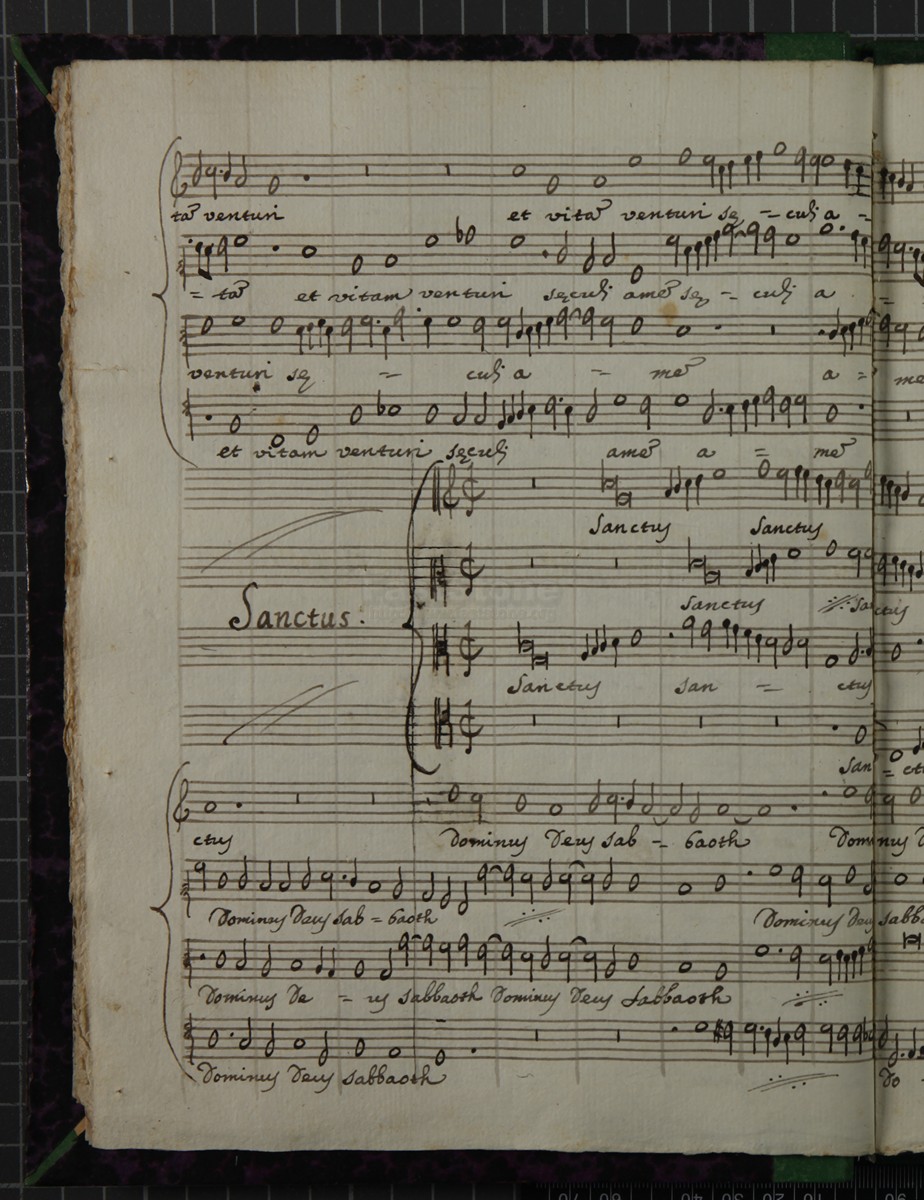 tã venturi et vitã venturi sę = culi a =
= tã et vitam venturi sęculi amẽ sę = culi a
venturi sę = culi a = mẽ a =
et vitam venturi sęculi amẽ a = mẽ
Sanctus Sanctus
Sanctus :
Sanctus Sanctus
Sanctus san = ctus
san = 
ctus Dominus Deus sab = baoth Dominus
Dominus Deus sab = baoth Dominus Deus sabba
Dominus De = us sabbaoth Dominus Deus sabbaoth
Dominus Deus sabbaoth Do